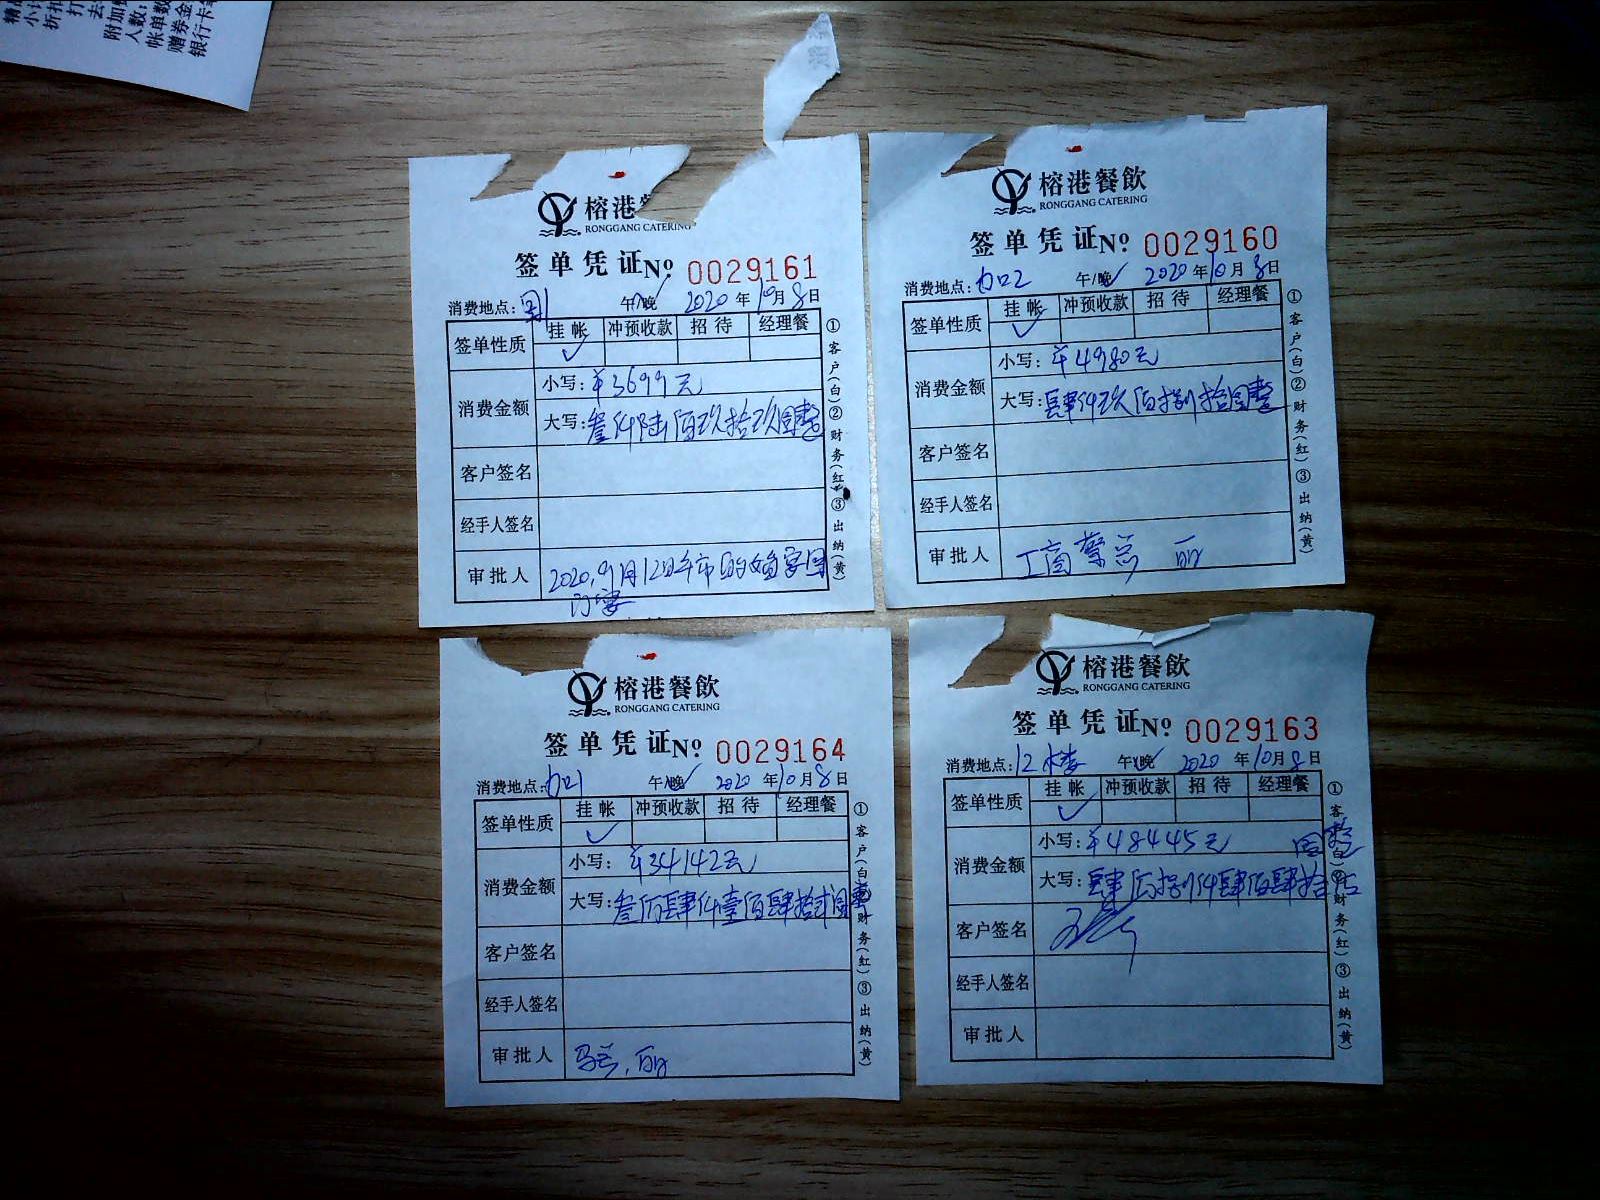 小
折扣
打
去
附加费
人数:
帐单数
赠券金
银行卡
榕港
RONGGANG CATERING
签单凭证 № 0029161
消费地点: 午/晚✓ 2020年10月8日
签单性质 挂帐 冲预收款 招待 经理餐
✓
消费金额 小写:¥3699元
大写:叁仟陆佰玖拾玖圆整
客户签名
经手人签名
审批人 2020.9月12日
①客户(白)②财务(红)③出纳(黄)
榕港餐飲
RONGGANG CATERING
签单凭证 № 0029160
消费地点: 午/晚✓ 2020年10月8日
签单性质 挂帐 冲预收款 招待 经理餐
✓
消费金额 小写:¥4980元
大写:肆仟玖佰捌拾圆整
客户签名
经手人签名
审批人 工商蔡总
①客户(白)②财务(红)③出纳(黄)
榕港餐飲
RONGGANG CATERING
签单凭证 № 0029164
消费地点: 午/晚✓ 2020年10月8日
签单性质 挂帐 冲预收款 招待 经理餐
✓
消费金额 小写:¥34142元
大写:叁万肆仟壹佰肆拾贰圆整
客户签名
经手人签名
审批人
①客户(白)②财务(红)③出纳(黄)
榕港餐飲
RONGGANG CATERING
签单凭证 № 0029163
消费地点:12楼 午/晚✓ 2020年10月8日
签单性质 挂帐 冲预收款 招待 经理餐
✓
消费金额 小写:¥48445元
大写:肆万捌仟肆佰肆拾伍圆整
客户签名
经手人签名
审批人
①客户(白)②财务(红)③出纳(黄)